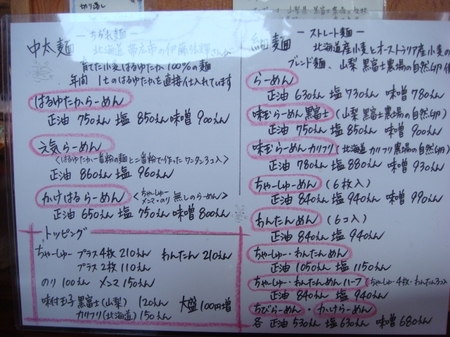 中太麺 ーちぢれ麺ー
育てた小麦はるゆたか100%の麺
年間 1tのはるゆたかを直接仕入れています
はるゆたからーめん
正油 750えん 塩 850えん 味噌 900えん
元気らーめん
正油 860えん 塩 960えん
かけはるらーめん <ちゃーしゅー メンマ・のり 無しのらーめん>
正油 650えん 塩 750えん 味噌 800えん
トッピング
ちゃーしゅー プラス4枚 210えん わんたん 210えん
プラス2枚 110えん
のり 100えん メンマ 150えん
味付玉子 黒富士(山梨) 120えん 大盛 100円増
カリフリ(北海道) 150えん
麺 ーストレート麺ー
北海道産小麦とオーストラリア産小麦の
ブレンド麺、山梨 黒富士農場の自然卵
らーめん
正油 630えん 塩 730えん 味噌 780えん
味玉らーめん 黒富士 (山梨 黒富士農場の自然卵)
正油 750えん 塩 850えん 味噌 900えん
味玉らーめん カリフリ (北海道 カリフリ農場の自然卵
正油 780えん 塩 880えん 味噌 930えん
ちゃーしゅーめん (6枚入)
正油 840えん 塩 940えん 味噌 990えん
わんたんめん (6コ入)
正油 840えん 塩 940えん
ちゃーしゅー・わんたんめん
正油 1050えん 塩 1150えん
ちゃーしゅー・わんたんめんハーフ (ちゃーしゅー4枚・わんたん3コ入
正油 840えん 塩 940えん
ちびらーめん・かけらーめん
各 正油 530えん 塩 630えん 味噌 680えん